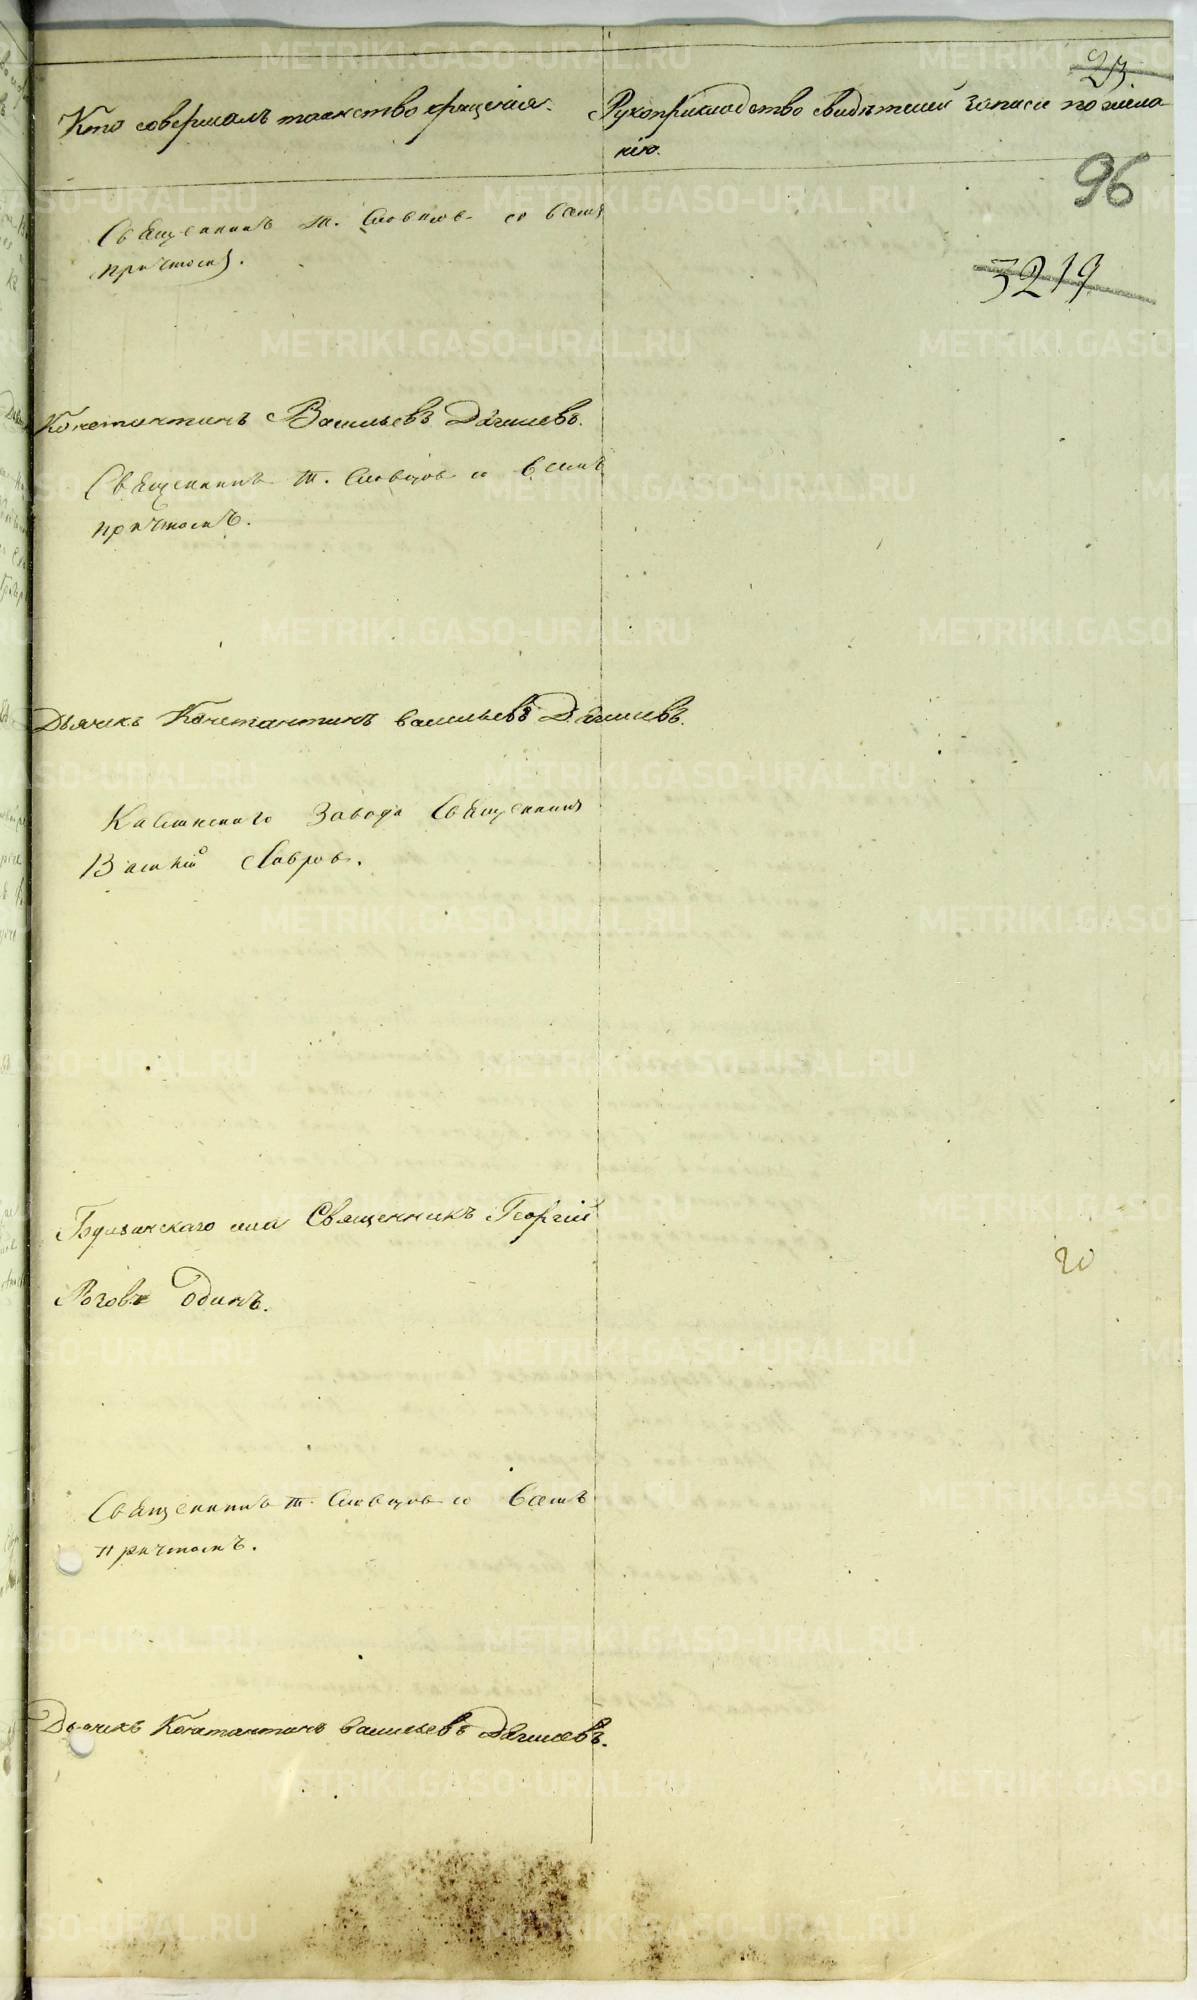 23.
Кто совершалъ таинство крещенія.
Рукоприкладство свидѣтелей записи по жела-
нію.
96
3219
Священникъ Т. Словцовъ со всѣмъ
причтомъ.
Константинъ Васильевъ
Священникъ Т. Словцовъ со всѣмъ
причтомъ.
Дьячекъ Константинъ Васильевъ
Каслинскаго Завода Священникъ
Василій Лавровъ.
Булзинскаго села Священникъ Георгій
Роговъ Одинъ.
Священникъ Т. Словцовъ со всѣмъ
причтомъ.
Дьячекъ Константинъ Васильевъ
METRIKI.GASO-URAL.RU